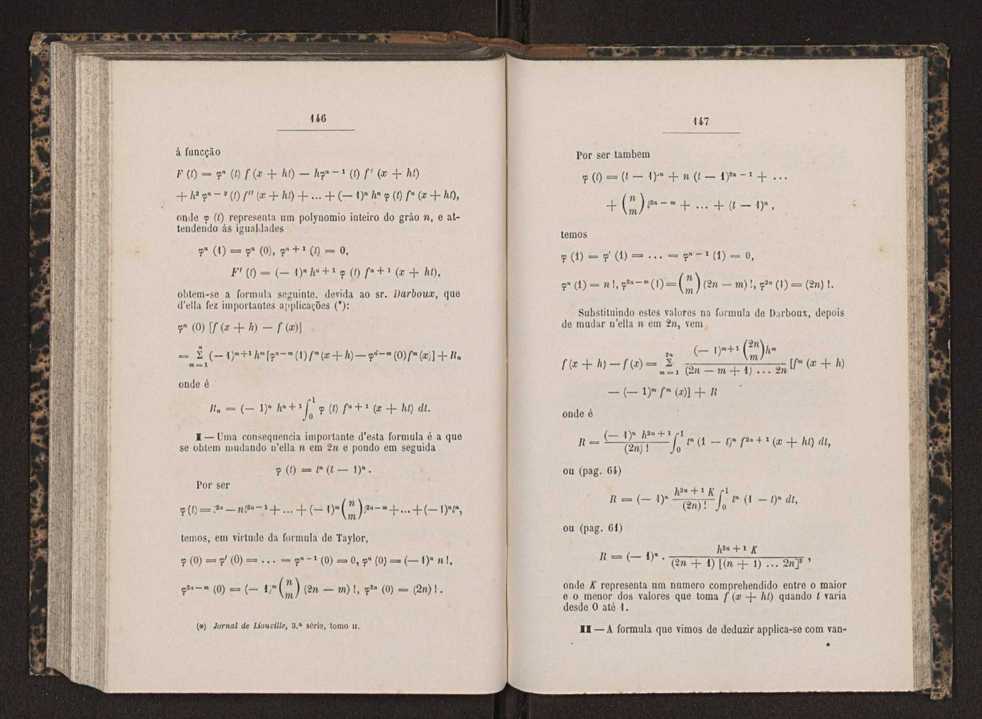 146
á funcção
F (t) = φⁿ (t) f (x + ht) — hφⁿ⁻¹ (t) f′ (x + ht)
+ h² φⁿ⁻² (t) f″ (x + ht) + ... + (— 1)ⁿ hⁿ φ (t) fⁿ (x + ht),
onde φ (t) representa um polynomio inteiro do grão n, e at-
tendendo ás igualdades
φⁿ (1) = φⁿ (0), φⁿ⁺¹ (t) = 0,
F′ (t) = (— 1)ⁿ hⁿ⁺¹ φ (t) fⁿ⁺¹ (x + ht),
obtem-se a formula seguinte, devida ao sr. Darboux, que
d'ella fez importantes applicações (*):
φⁿ (0) [f (x + h) — f (x)]
= Σ_{m=1}^{n} (— 1)^{m+1} h^m [φ^{n—m} (1) f^m (x + h) — φ^{n—m} (0) f^m (x)] + Rₙ
onde é
Rₙ = (— 1)ⁿ hⁿ⁺¹ ∫₀¹ φ (t) fⁿ⁺¹ (x + ht) dt.
I — Uma consequencia importante d'esta formula é a que
se obtem mudando n'ella n em 2n e pondo em seguida
φ (t) = tⁿ (t — 1)ⁿ.
Por ser
φ (t) = t²ⁿ — nt²ⁿ⁻¹ + ... + (— 1)^m (n m) t^{2n—m} + ... + (— 1)ⁿ tⁿ,
temos, em virtude da formula de Taylor,
φ (0) = φ′ (0) = ... = φⁿ⁻¹ (0) = 0, φⁿ (0) = (— 1)ⁿ n !,
φ^{2n—m} (0) = (— 1)^m (n m) (2n — m) !, φ²ⁿ (0) = (2n) ! .
(*) Jornal de Liouville, 3.ª série, tomo II.
147
Por ser tambem
φ (t) = (t — 1)²ⁿ + n (t — 1)²ⁿ⁻¹ + ...
+ (n m) t^{2n—m} + ... + (t — 1)ⁿ,
temos
φ (1) = φ′ (1) = ... = φⁿ⁻¹ (1) = 0,
φⁿ (1) = n !, φ^{2n—m} (1) = (n m) (2n — m) !, φ²ⁿ (1) = (2n) !.
Substituindo estes valores na formula de Darboux, depois
de mudar n'ella n em 2n, vem
f (x + h) — f (x) = Σ_{m=1}^{2n} (— 1)^{m+1} (2n m) h^m / (2n — m + 1) ... 2n [f^m (x + h)
— (— 1)^m f^m (x)] + R
onde é
R = (— 1)ⁿ h²ⁿ⁺¹ / (2n) ! ∫₀¹ tⁿ (1 — t)ⁿ f²ⁿ⁺¹ (x + ht) dt,
ou (pag. 64)
R = (— 1)ⁿ h²ⁿ⁺¹ K / (2n) ! ∫₀¹ tⁿ (1 — t)ⁿ dt,
ou (pag. 61)
R = (— 1)ⁿ . h²ⁿ⁺¹ K / (2n + 1) [(n + 1) ... 2n]² ,
onde K representa um numero comprehendido entre o maior
e o menor dos valores que toma f (x + ht) quando t varia
desde 0 até 1.
II — A formula que vimos de deduzir applica-se com van-
*